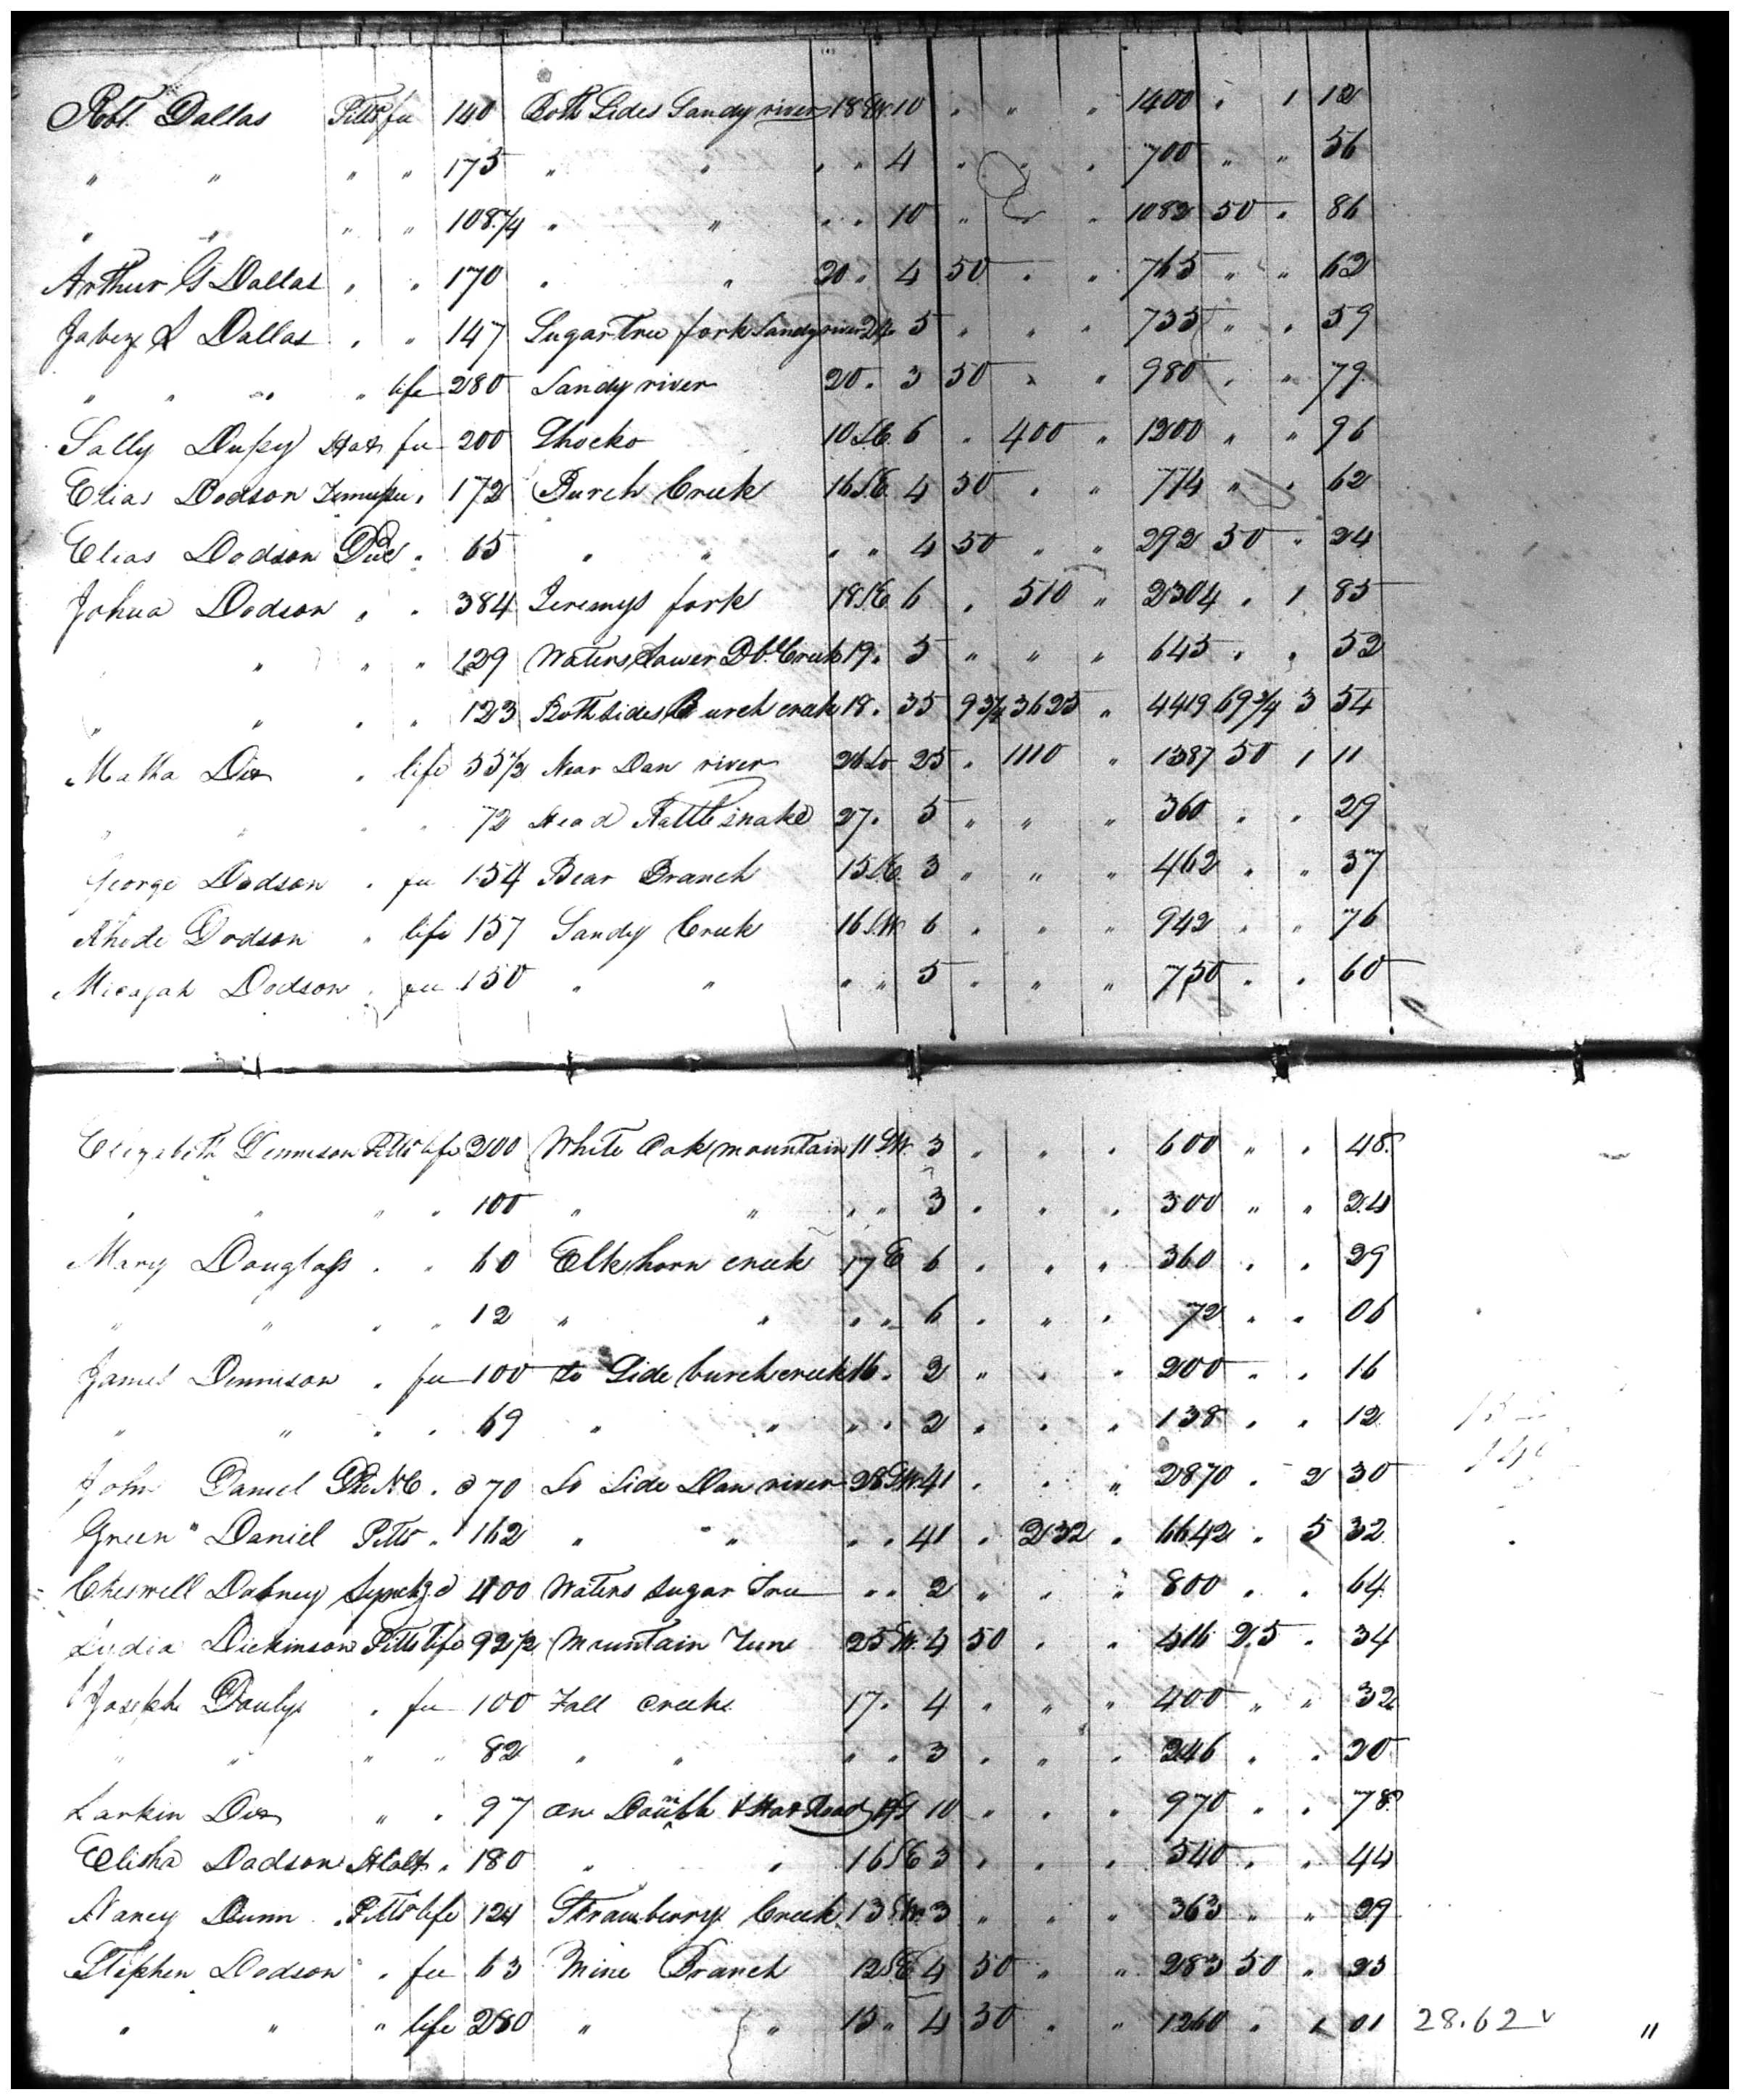 Robt. Dallas Pitts fee 140 Both Sides Sandy river 18 SW. 10 " " " 1400 " 1 12
" " " " 175 " " " " 4 " " " 700 " " 56
" " " " 108 1/4 " " " " 10 " " " 1082 50 " 86
Arthur G Dallas " " 170 " " 20 " 4 50 " " 765 " " 62
Jabez S Dallas " " 147 Sugar Tree fork Sandy river 24 5 " " " 735 " " 59
" " " " life 280 Sandy river 20 " 3 50 " " 980 " " 79
Sally Dupey fee 200 Shocko 10 SE. 6 " 400 " 1200 " " 96
Elias Dodson " 172 Burch Creek 16 SE 4 50 " " 774 " " 62
Elias Dodson " 65 " " " " 4 50 " " 292 50 " 24
Johua Dodson " " 384 Jeremys fork 18 SE 6 " 510 " 2304 " 1 85
" " " 129 Waters Lower Dbl. Creek 19 " 5 " " " 645 " " 52
" " " " 123 Both Sides Burch creek 18 " 35 93 3/4 3625 " 4419 69 3/4 3 54
Matha Dix " life 55 1/2 Near Dan river 26 So 25 " 1110 " 1387 50 1 11
" " " " 72 Head Rattlesnake 27 " 5 " " " 360 " " 29
George Dodson " fee 154 Bear Branch 15 SE. 3 " " " 462 " " 37
Rhode Dodson " life 157 Sandy Creek 16 SW. 6 " " " 942 " " 76
Micajah Dodson " fee 150 " " " " 5 " " " 750 " " 60
Elizabeth Dennison Pitts life 200 White Oak mountain 11 SW. 3 " " " 600 " " 48
" " " " 100 " " " " 3 " " " 300 " " 24
Mary Douglass " " 60 Elkhorn creek 17 E 6 " " " 360 " " 29
" " " " 12 " " " " 6 " " " 72 " " 06
James Dennison " fee 100 So Side burch creek 16 " 2 " " " 200 " " 16
" " " " 69 " " " " 2 " " " 138 " " 12
John Daniel NC. " 70 So Side Dan river 28 SW. 41 " " " 2870 " 2 30
Green " Daniel Pitts " 162 " " " " 41 " 232 " 6642 " 5 32
Cheswell Dabney 400 Waters Sugar Tree " " 2 " " " 800 " " 64
Lydia Dickinson Pitts life 92 1/2 Mountain Run 25 SW. 4 50 " " 416 25 " 34
Joseph " fee 100 Fall Creek 17 " 4 " " " 400 " " 32
" " " " 82 " " " " 3 " " " 246 " " 20
Larkin Dix " " 97 on Road 10 " " " 970 " " 78
Elisha Dodson " 180 " " 16 SE 3 " " " 540 " " 44
Nancy Dunn " Pitts life 121 Strawberry Creek 13 SW. 3 " " " 363 " " 29
Stephen Dodson " fee 63 Mine Branch 12 SE 4 50 " " 283 50 " 23
" " " life 280 " " 13 " 4 50 " " 1260 " 1 01 28.62 v "